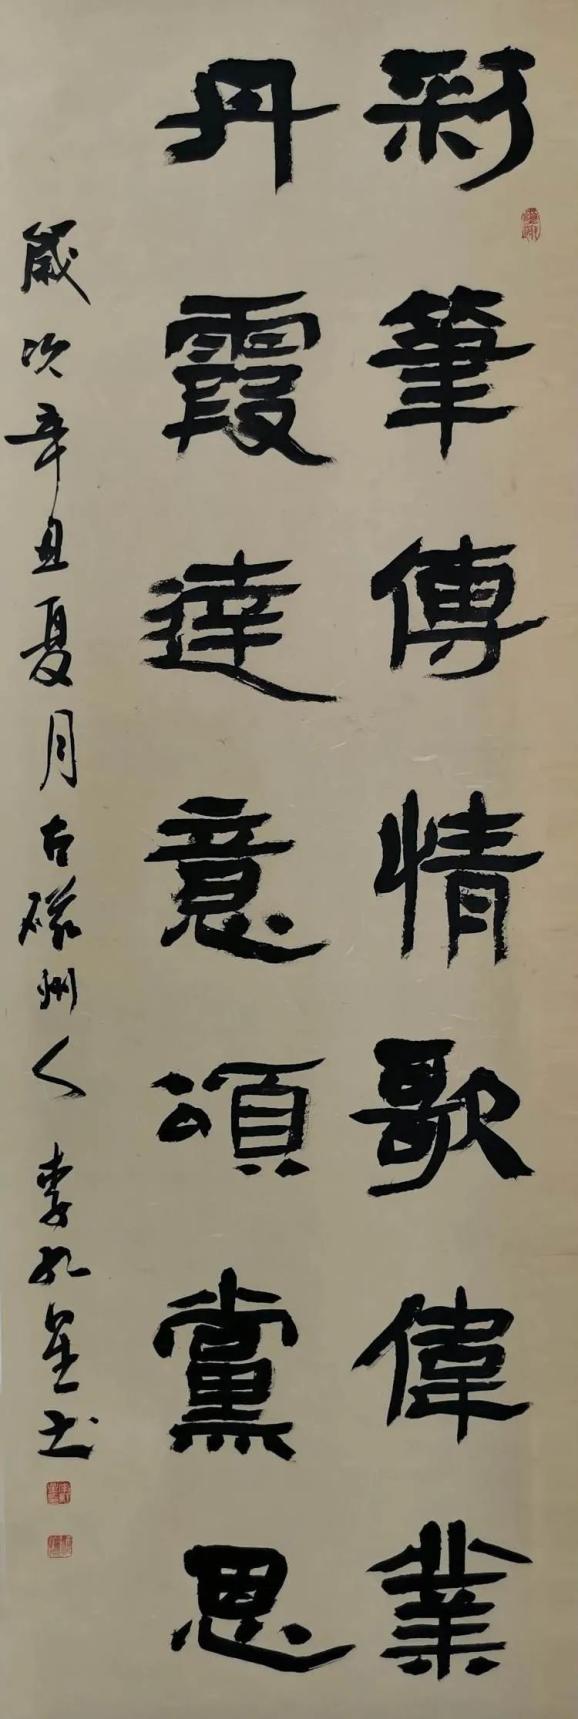 彩筆傳情歌偉業
丹霞達意頌黨恩
歲次辛丑夏月古磁州人李星书